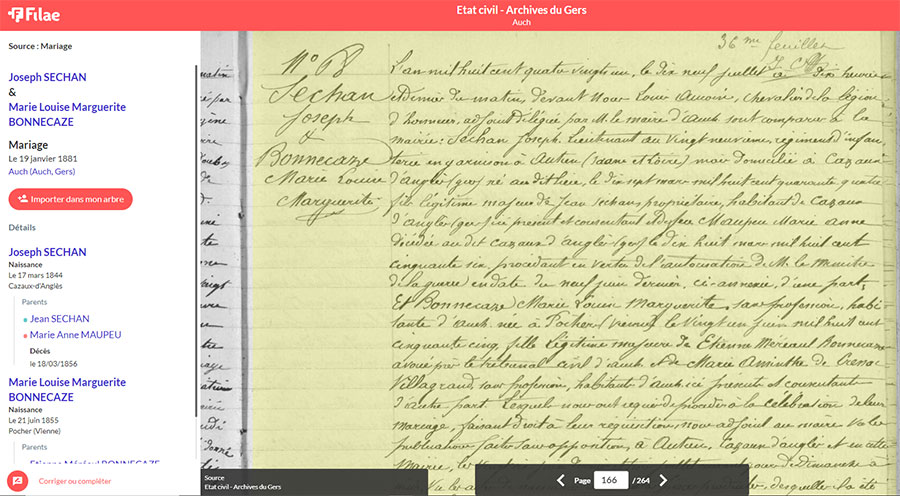 Filae
Etat civil - Archives du Gers
Auch
Source : Mariage
Joseph SECHAN
&
Marie Louise Marguerite
BONNECAZE
Mariage
Le 19 janvier 1881
Auch (Auch, Gers)
Importer dans mon arbre
Détails
Joseph SECHAN
Naissance
Le 17 mars 1844
Cazaux-d'Anglès
Parents
Jean SECHAN
Marie Anne MAUPEU
Décès
le 18/03/1856
Marie Louise Marguerite
BONNECAZE
Naissance
Le 21 juin 1855
Pocher (Vienne)
Parents
Etienne Méréaul BONNECAZE
Corriger ou compléter
36 me feuillet
Sechan
Joseph
&
Bonnecaze
Marie Louise
Marguerite
L'an mil huit cent quatre vingt un, le dix neuf juillet à dix heures
et demie du matin, devant Nous Louis, chevalier de la légion
d'honneur, adjoint délégué par M. le maire d'auch sont comparus à la
mairie: Sechan Joseph, Lieutenant au vingt neuvième, régiment d'infan
terie en garnison à Autun (Saone et Loire) mais domicilié à Cazaux
d'anglès (gers) né au dit lieu, le dix sept mars mil huit cent quarante quatre
fils légitime majeur de Jean Sechan propriétaire, habitant de Cazaux
d'anglès (gers) ici présent et consentant et de feue Maupeu Marie anne
décédée au dit cazaux d'anglès (gers) le dix huit mars mil huit cent
cinquante six, procédant en vertu de l'autorisation de M. le Ministre
de la guerre en date du neuf juin dernier, ci-annexée, d'une part,
Et Bonnecaze Marie Louise Marguerite, sans profession, habi
tante d'auch, née à Pocher (vienne) le vingt un juin mil huit cent
cinquante cinq, fille légitime majeure de Etienne Méréaul Bonnecaze
avoué près le tribunal civil d'auch et de Marie Aminthe de
Villagrand sans profession, habitants d'auch ici présents et consentants
d'autre part. Lesquels nous ont requis de procéder à la célébration de leur
mariage, faisant droit à leur réquisition, nous adjoint au maire vu les
publications faites sans opposition, à Autun, Cazaux d'anglès et en cette
Mairie, les
Source
Etat civil - Archives du Gers
Page 166 / 264